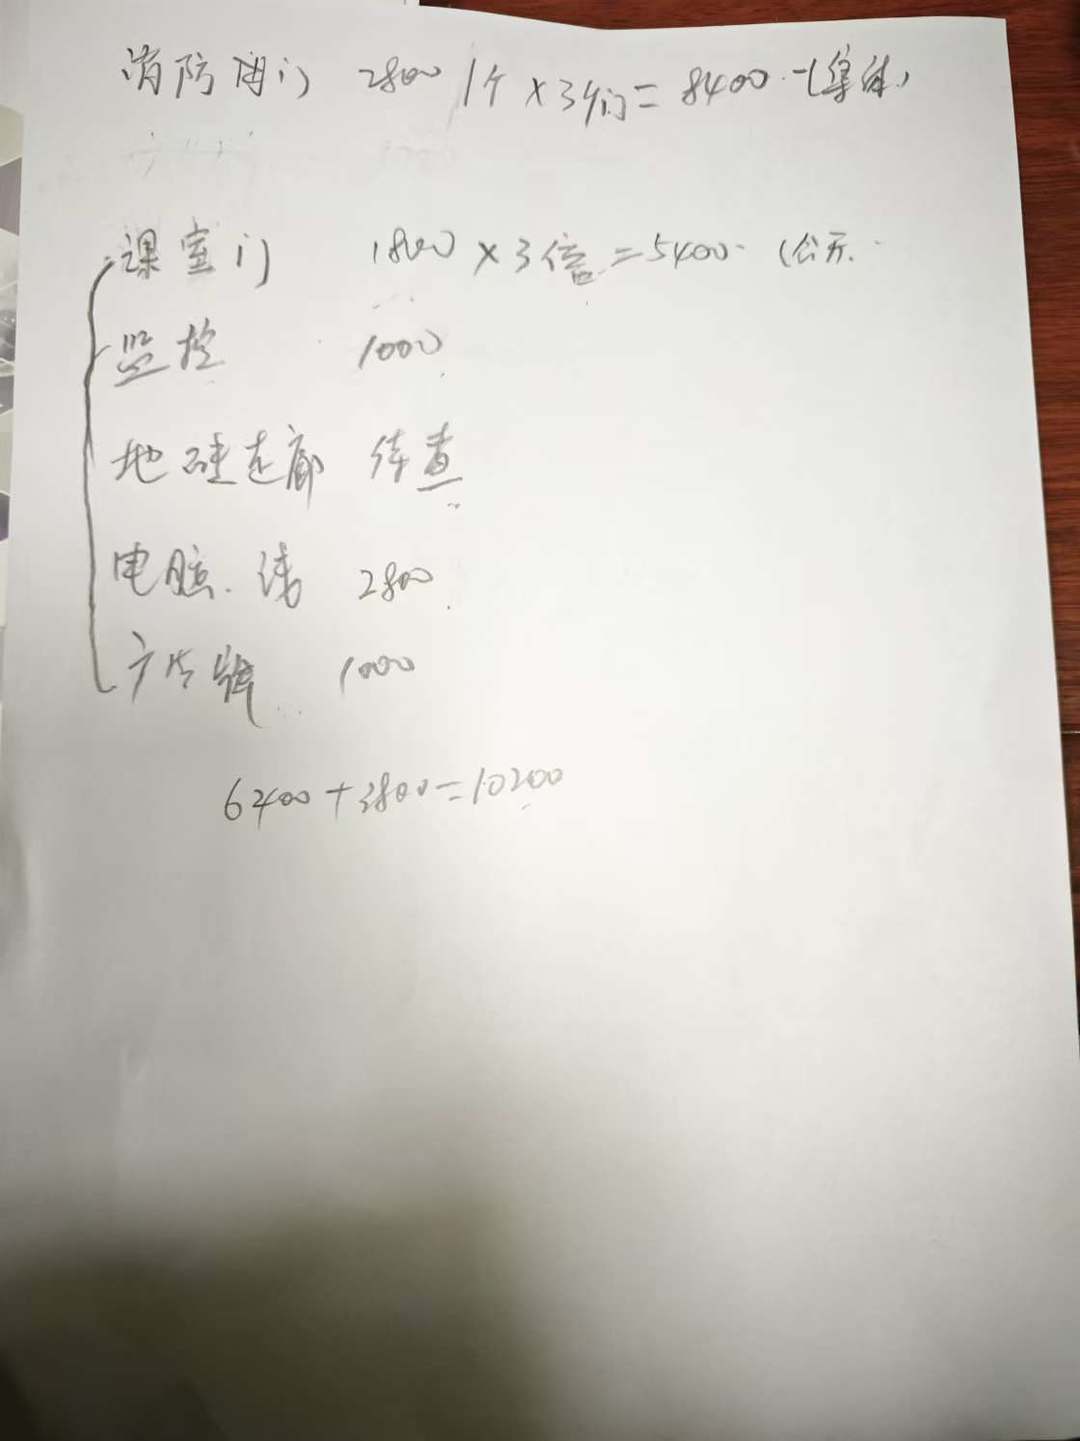 消防闭门 2800 1个 × 3个门 = 8400 (集体)
课室门 1800 × 3倍 = 5400 (公开
监控 1000
地 连廊 待查
电脑. 线 2800
广告牌 1000
6400 + 3800 = 10200